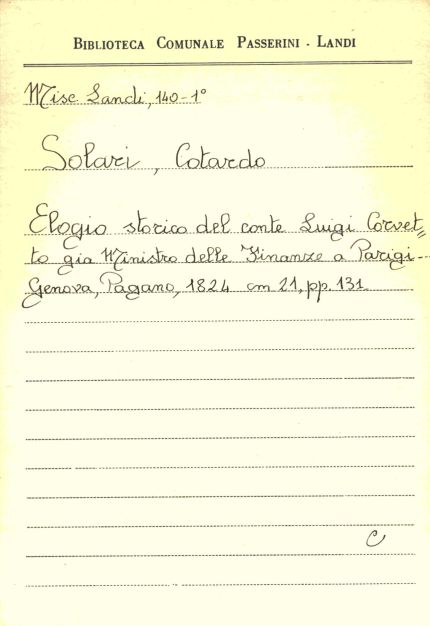 BIBLIOTECA COMUNALE PASSERINI - LANDI
Misc Landi, 140-1°
Solari, Cotardo
Elogio storico del conte Luigi Corvet=
to già Ministro delle Finanze a Parigi-
Genova, Pagano, 1824 cm 21, pp. 131.
C